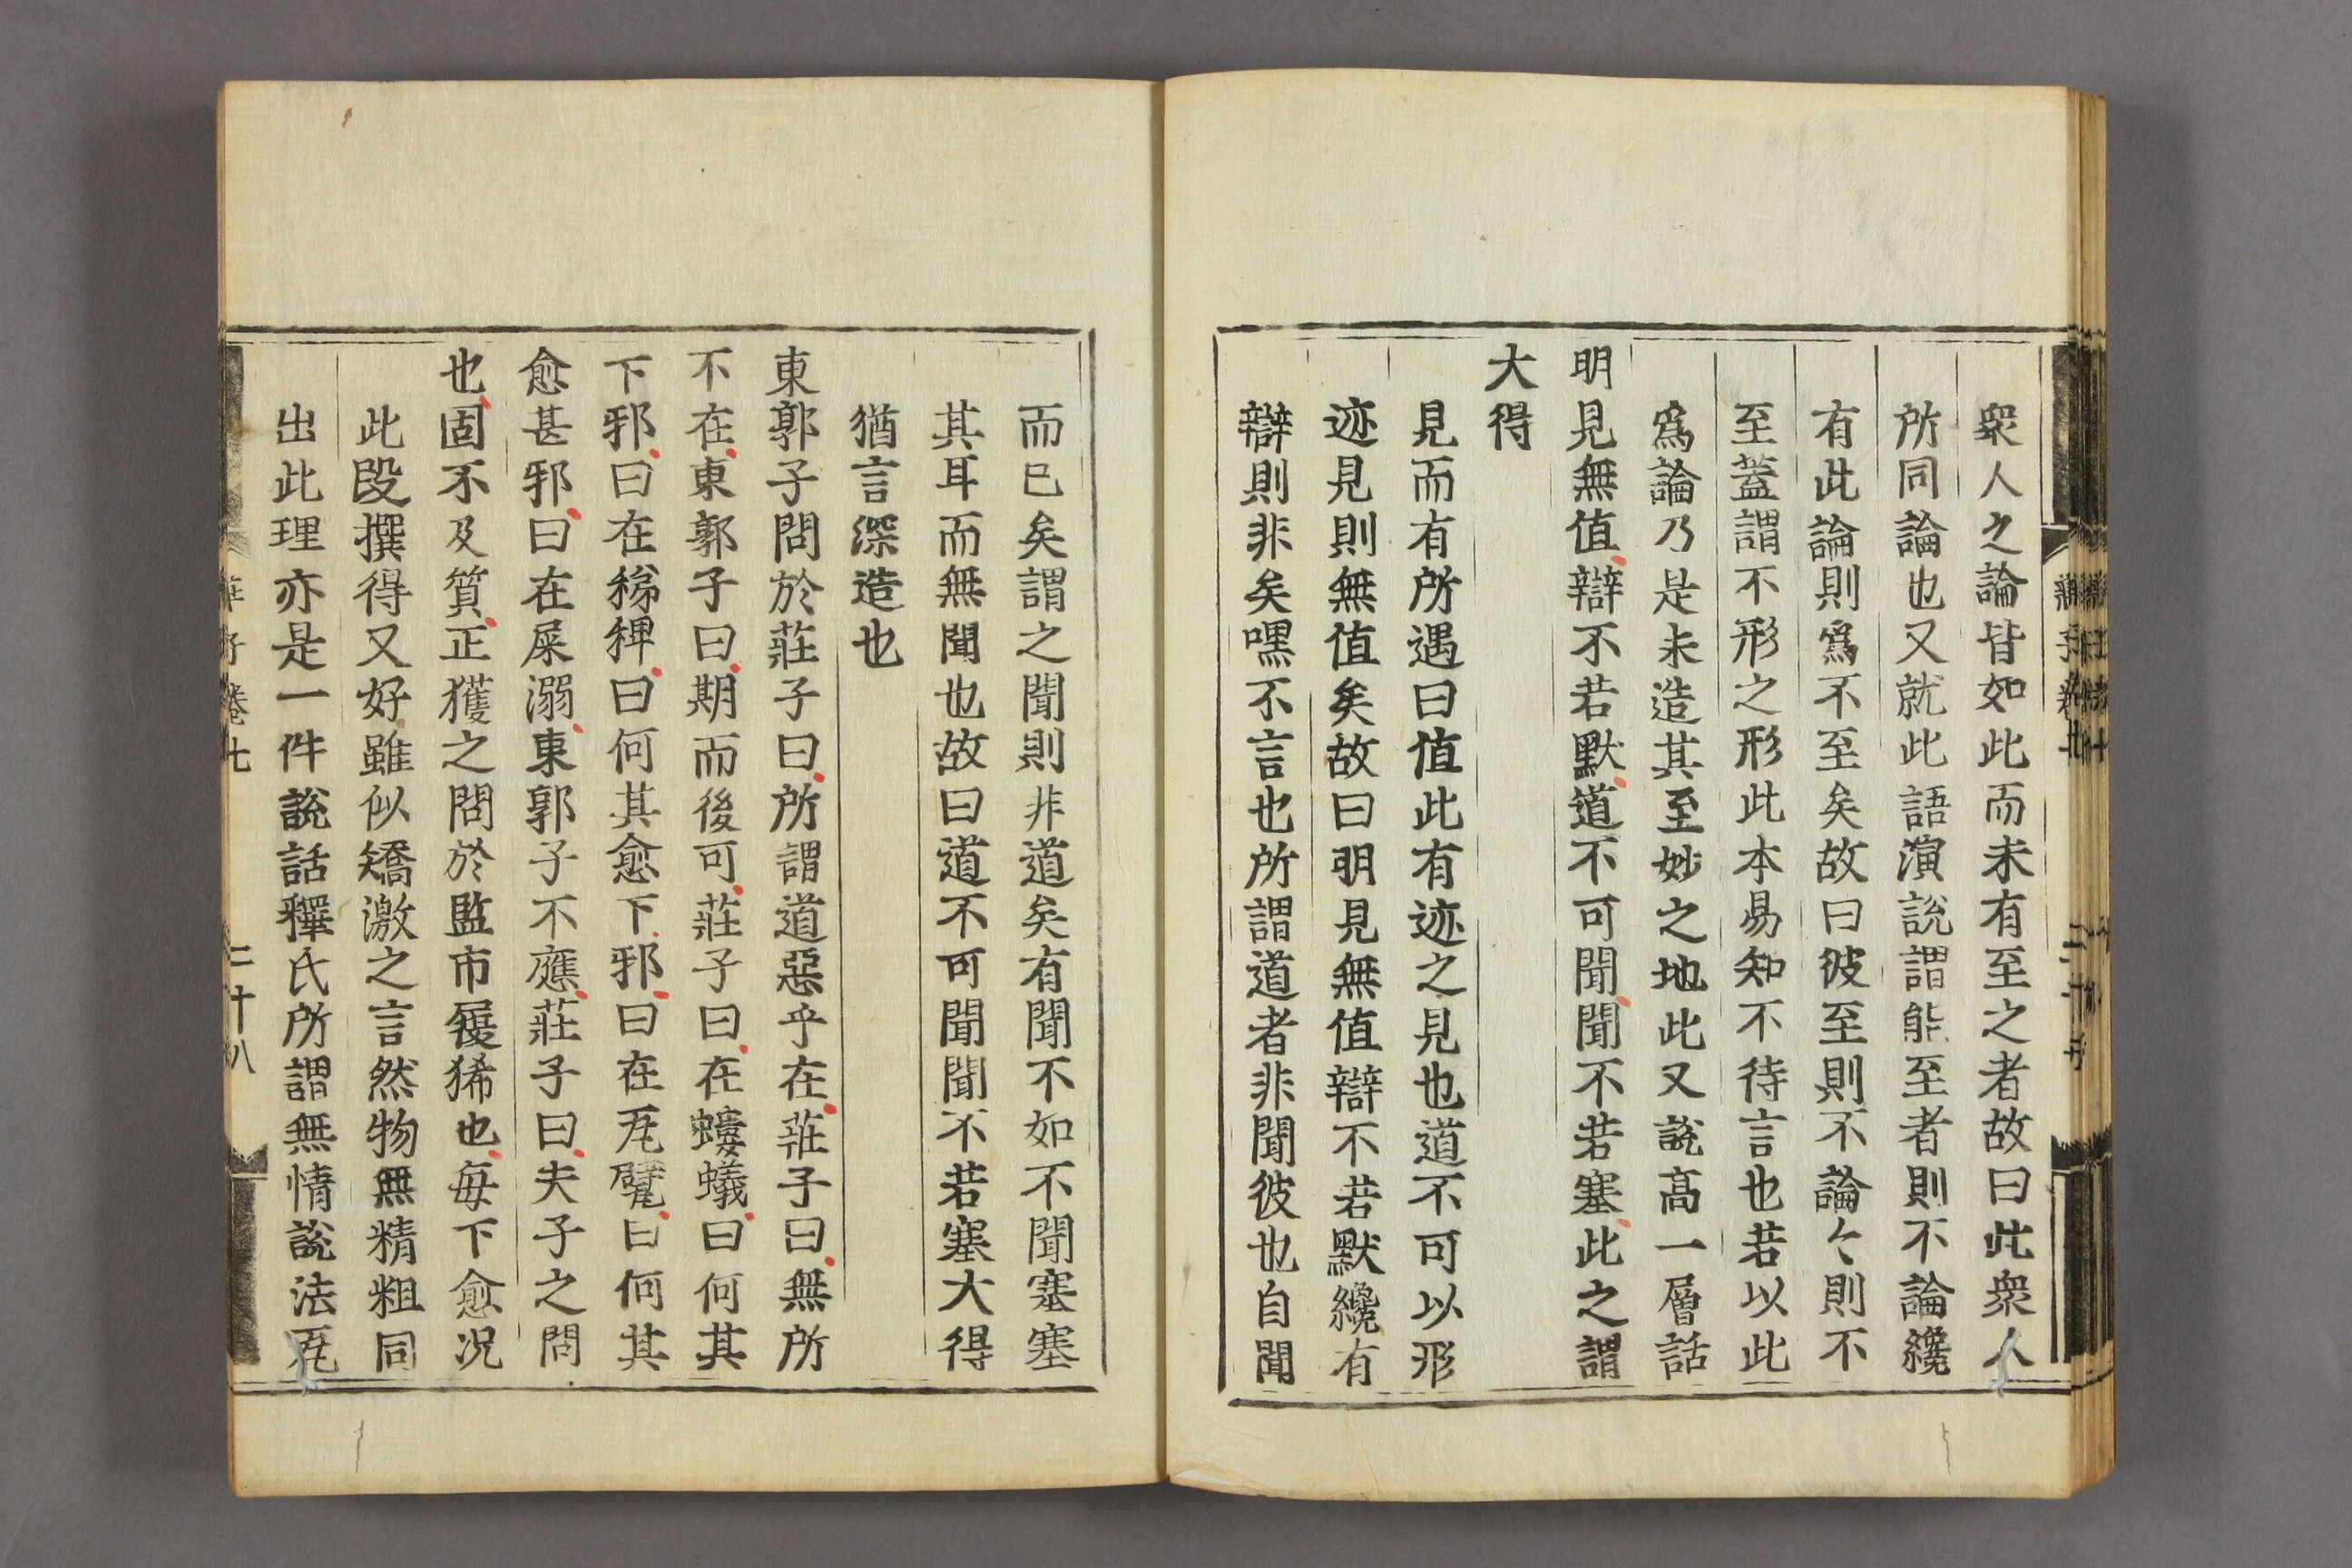 衆人之論皆如此而未有至之者故曰此衆人
所同論也又就此語演説謂能至者則不論纔
有此論則爲不至矣故曰彼至則不論〻則不
至蓋謂不形之形此本易知不待言也若以此
爲論乃是未造其至妙之地此又説高一層話
明見無值辯不若默道不可聞聞不若塞此之謂
大得
見而有所遇曰值此有迹之見也道不可以形
迹見則無值矣故曰明見無值辯不若默纔有
辯則非矣嘿不言也所謂道者非聞彼也自聞
而已矣謂之聞則非道矣有聞不如不聞塞塞
其耳而無聞也故曰道不可聞聞不若塞大得
猶言深造也
東郭子問於莊子曰所謂道惡乎在莊子曰無所
不在東郭子曰期而後可莊子曰在螻蟻曰何其
下邪曰在稊稗曰何其愈下邪曰在瓦甓曰何其
愈甚邪曰在屎溺東郭子不應莊子曰夫子之問
也固不及質正獲之問於監市履狶也每下愈况
此段撰得又好雖似矯激之言然物無精粗同
出此理亦是一件説話釋氏所謂無情説法瓦
莊子卷七
二十八